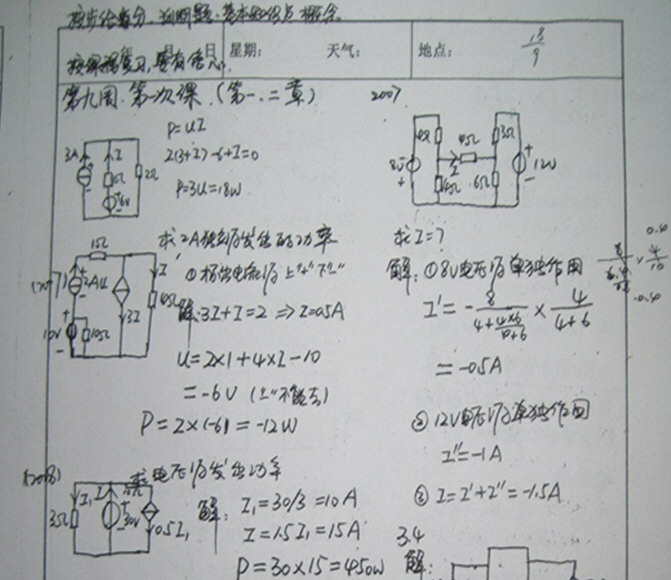 按步给分 判断题:基本知识点 概念
日 星期: 天气: 地点: 18/9
第九周.第一次课.(第一.二章) 2007
P=UI
2(3+I)-6+I=0
P=3U=18W
3A I 2Ω 6V
求2A独立源发出的功率
①标出电流源上"+"下"-"
解:3I+I=2 ⇒ I=0.5A
U=2×1+4×I-10
=-6V (
P=2×(-6)=-12W
1Ω 2A U 3I I 4Ω 10V 10Ω
(2008) 求电压源发出功率
解: I₁=30/3=10A
I=1.5I₁=15A
P=30×15=450W
3Ω I₁ I 30V 0.5I₁
4Ω 4Ω 3Ω 8V I 6Ω 12V
求I=?
解:①8V电压源单独作用
I'=-8/(4+(4×6)/(4+6))×4/(4+6)
=-0.5A
②12V电压源单独作用
I''=-1A
③I=I'+I''=-1.5A
3.4
解: